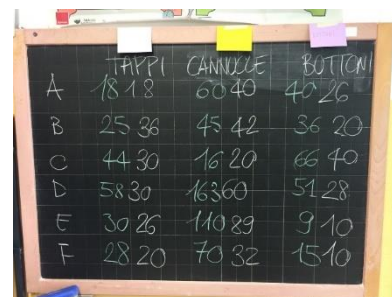 TAPPI CANNUCCE BOTTONI
A 18 18 60 40 40 26
B 25 36 45 42 36 20
C 44 30 16 20 66 40
D 58 30 163 60 51 28
E 30 26 110 89 9 10
F 28 20 70 32 15 10